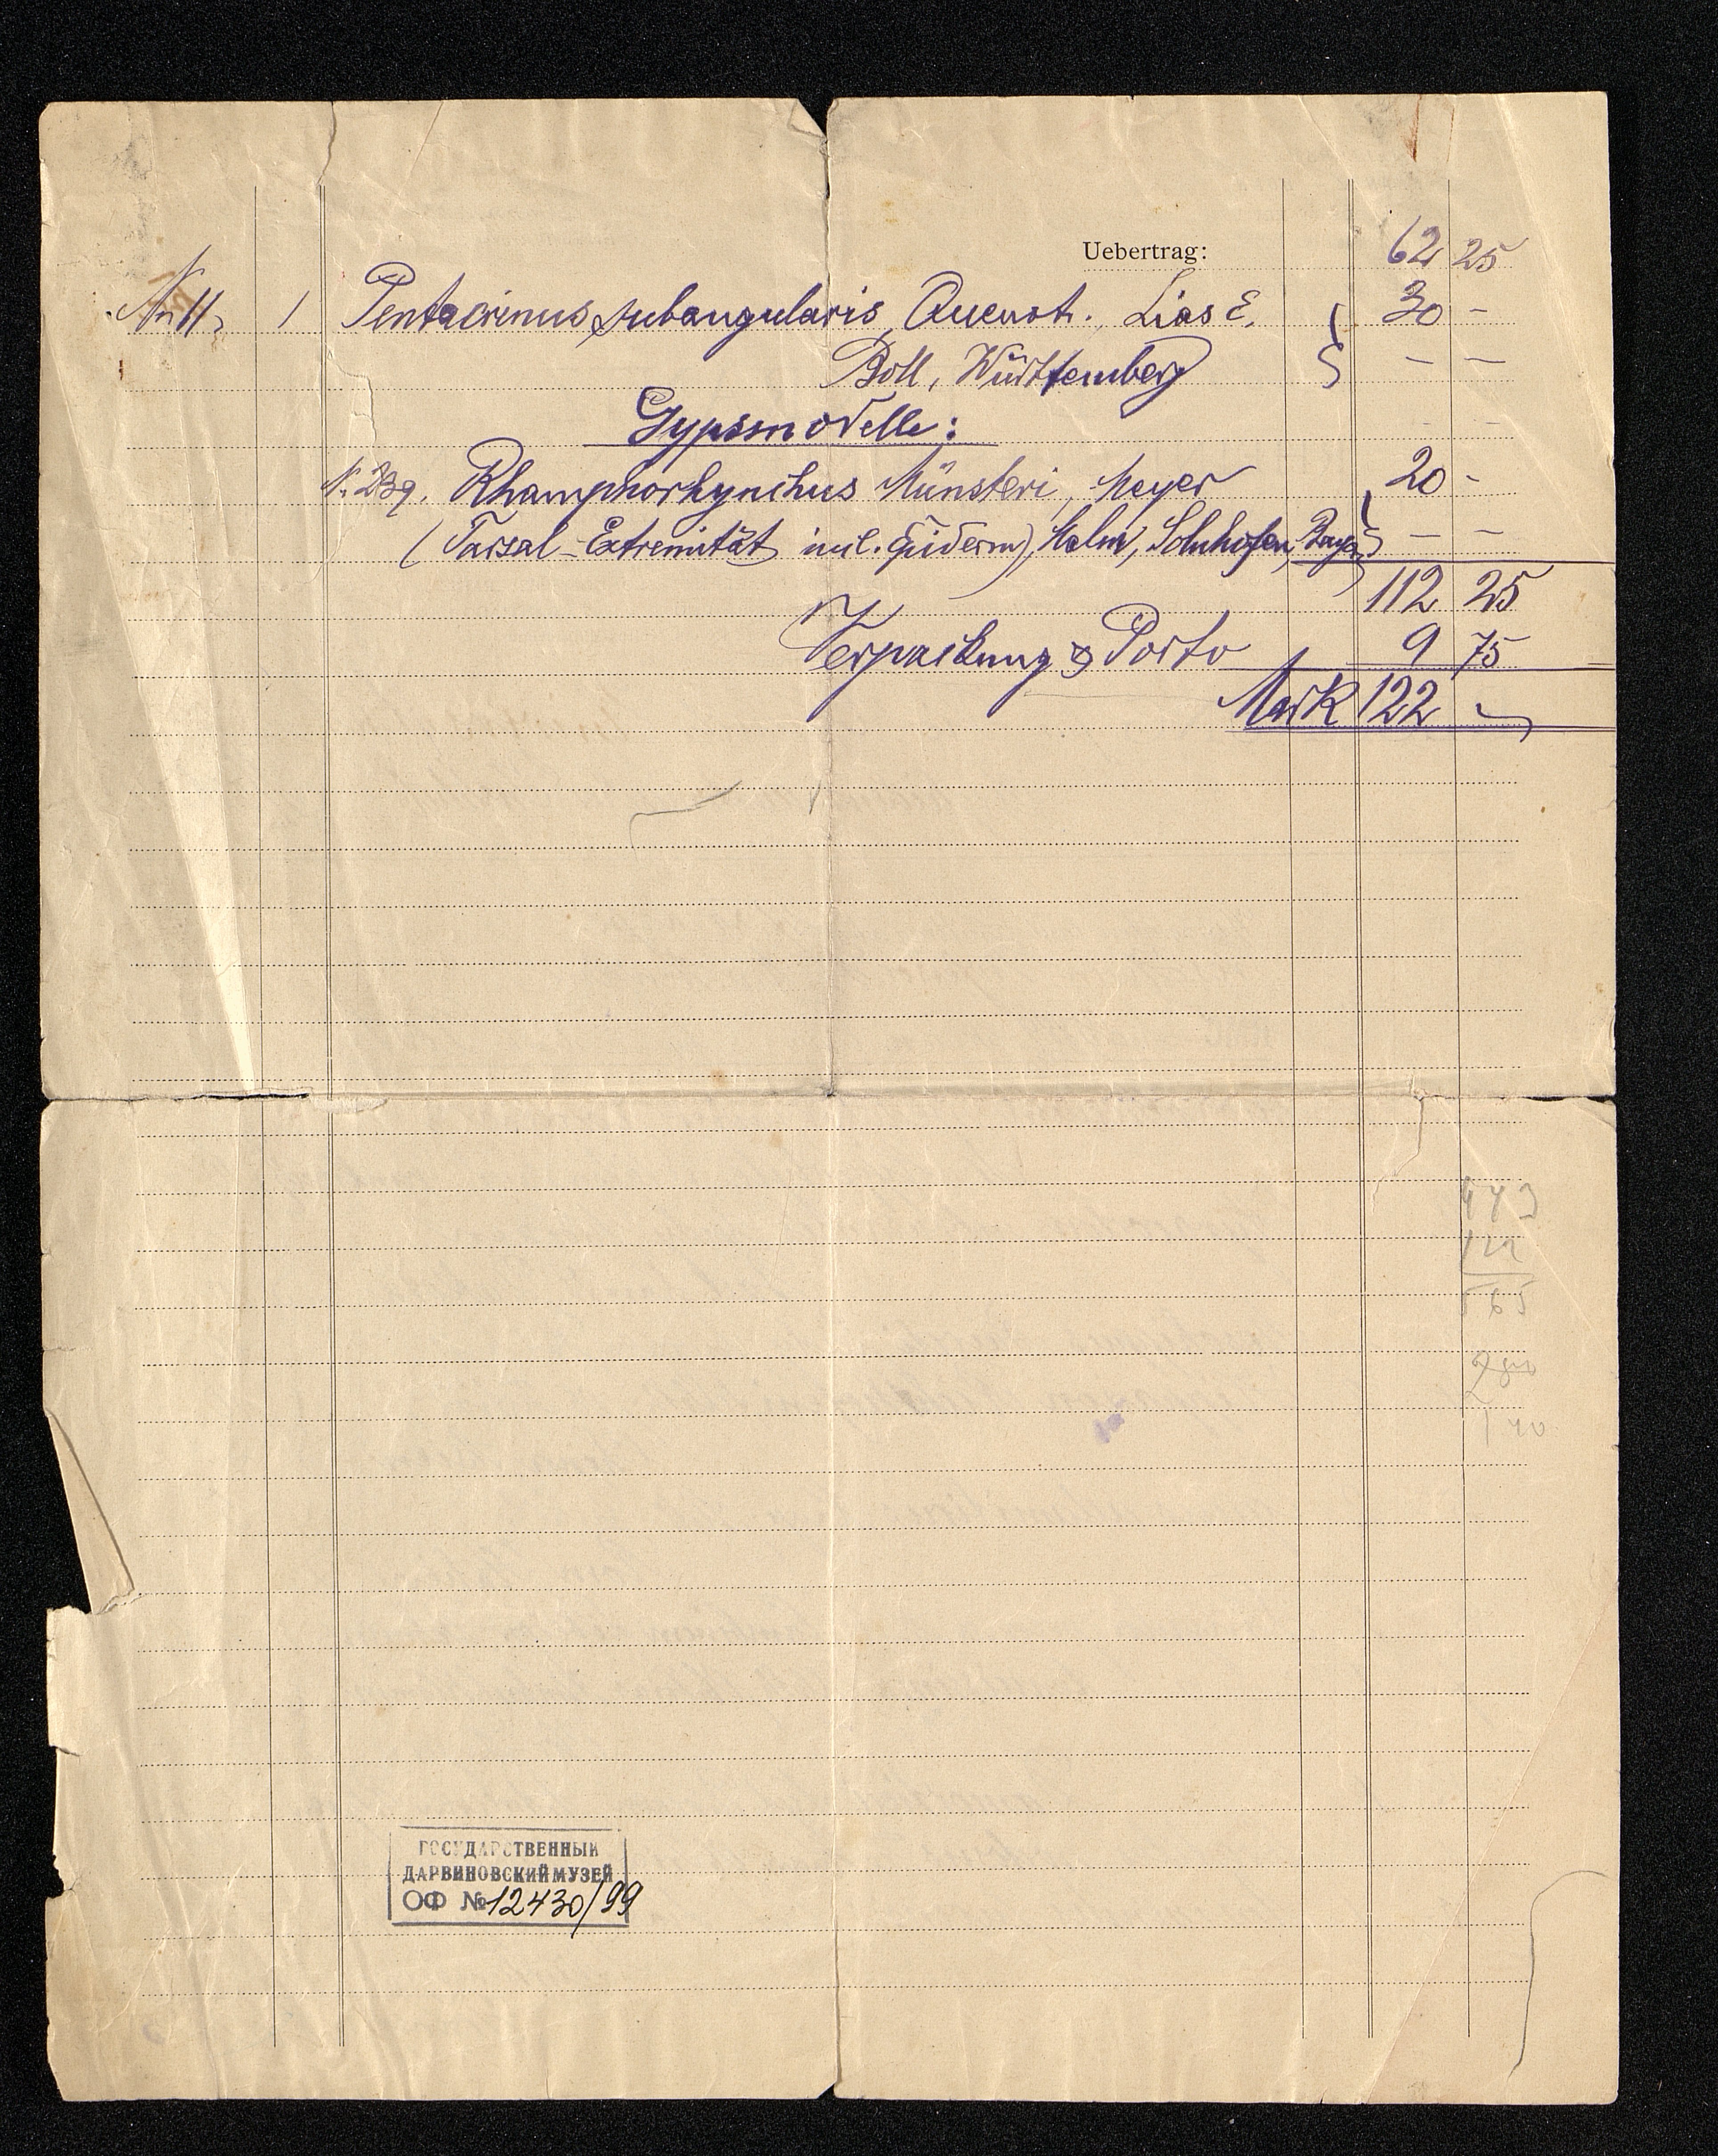 Uebertrag: 62 25
No 11, 1 Pentacrinus subangularis, Quenst., Lias ε, 30 -
Boll, Württemberg - -
Gypsmodelle:
N. 239. Rhamphorhynchus Münsteri, Meyer 20 -
(Tarsal-Extremität incl. Epiderm), Malm, Solnhofen, Bayern - -
112 25
Verpackung & Porto 9 75
Mark 122 -
443
122
565
280
140
ГОСУДАРСТВЕННЫЙ
ДАРВИНОВСКИЙ МУЗЕЙ
ОФ № 12430/99